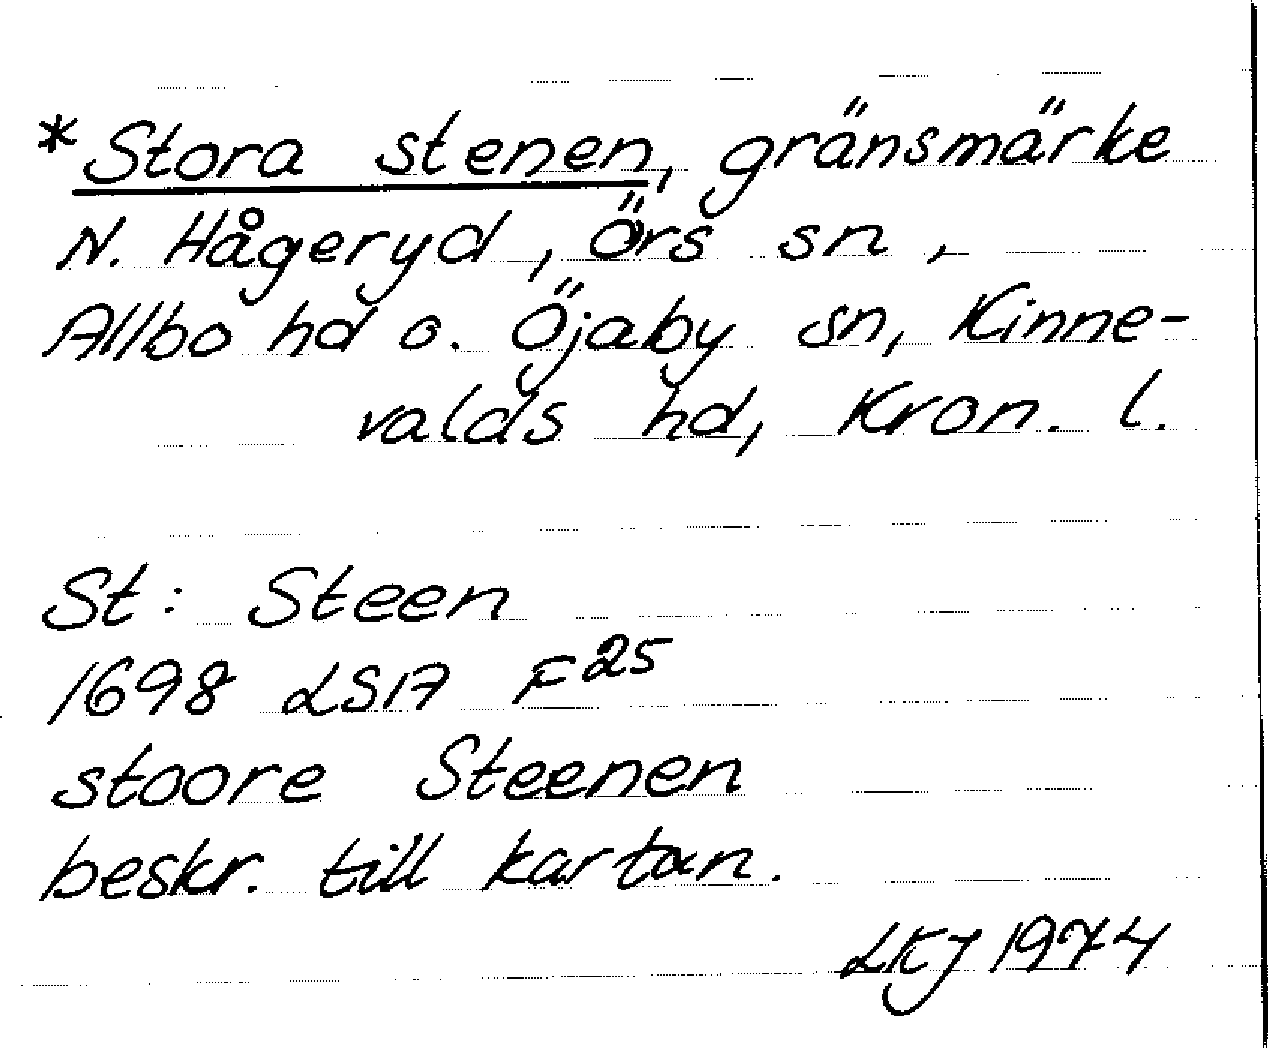 *Stora stenen, gränsmärke
N. Hågeryd, Örs sn,
Allbo hd o. Öjaby sn, Kinne-
valds hd, Kron. l.
St: Steen
1698 LSA F25
stoore Steenen
beskr. till kartan.
LKJ 1974